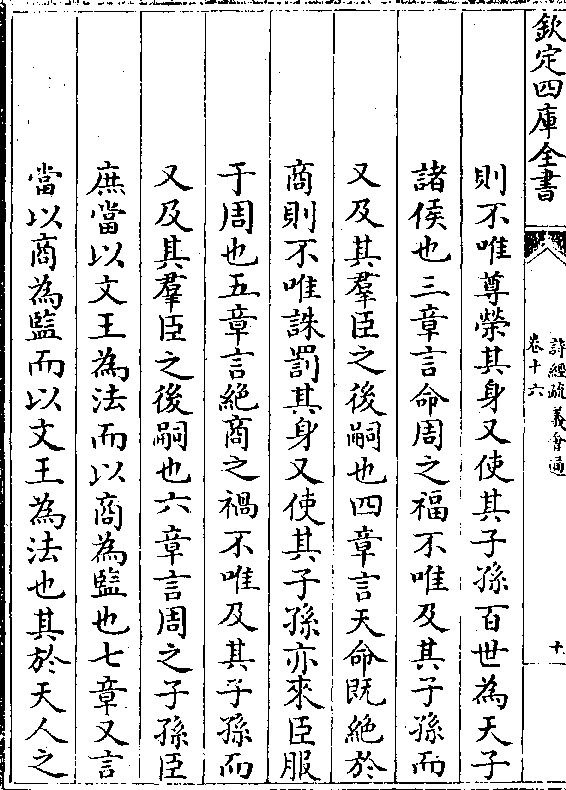 欽定四庫全書
詩經疏義會通
卷十六
十
則不唯尊榮其身又使其子孫百世為天子
諸侯也三章言命周之福不唯及其子孫而
又及其羣臣之後嗣也四章言天命既絶於
商則不唯誅罰其身又使其子孫亦來臣服
于周也五章言絶商之禍不唯及其子孫而
又及其羣臣之後嗣也六章言周之子孫臣
庶當以文王為法而以商為監也七章又言
當以商為監而以文王為法也其於天人之